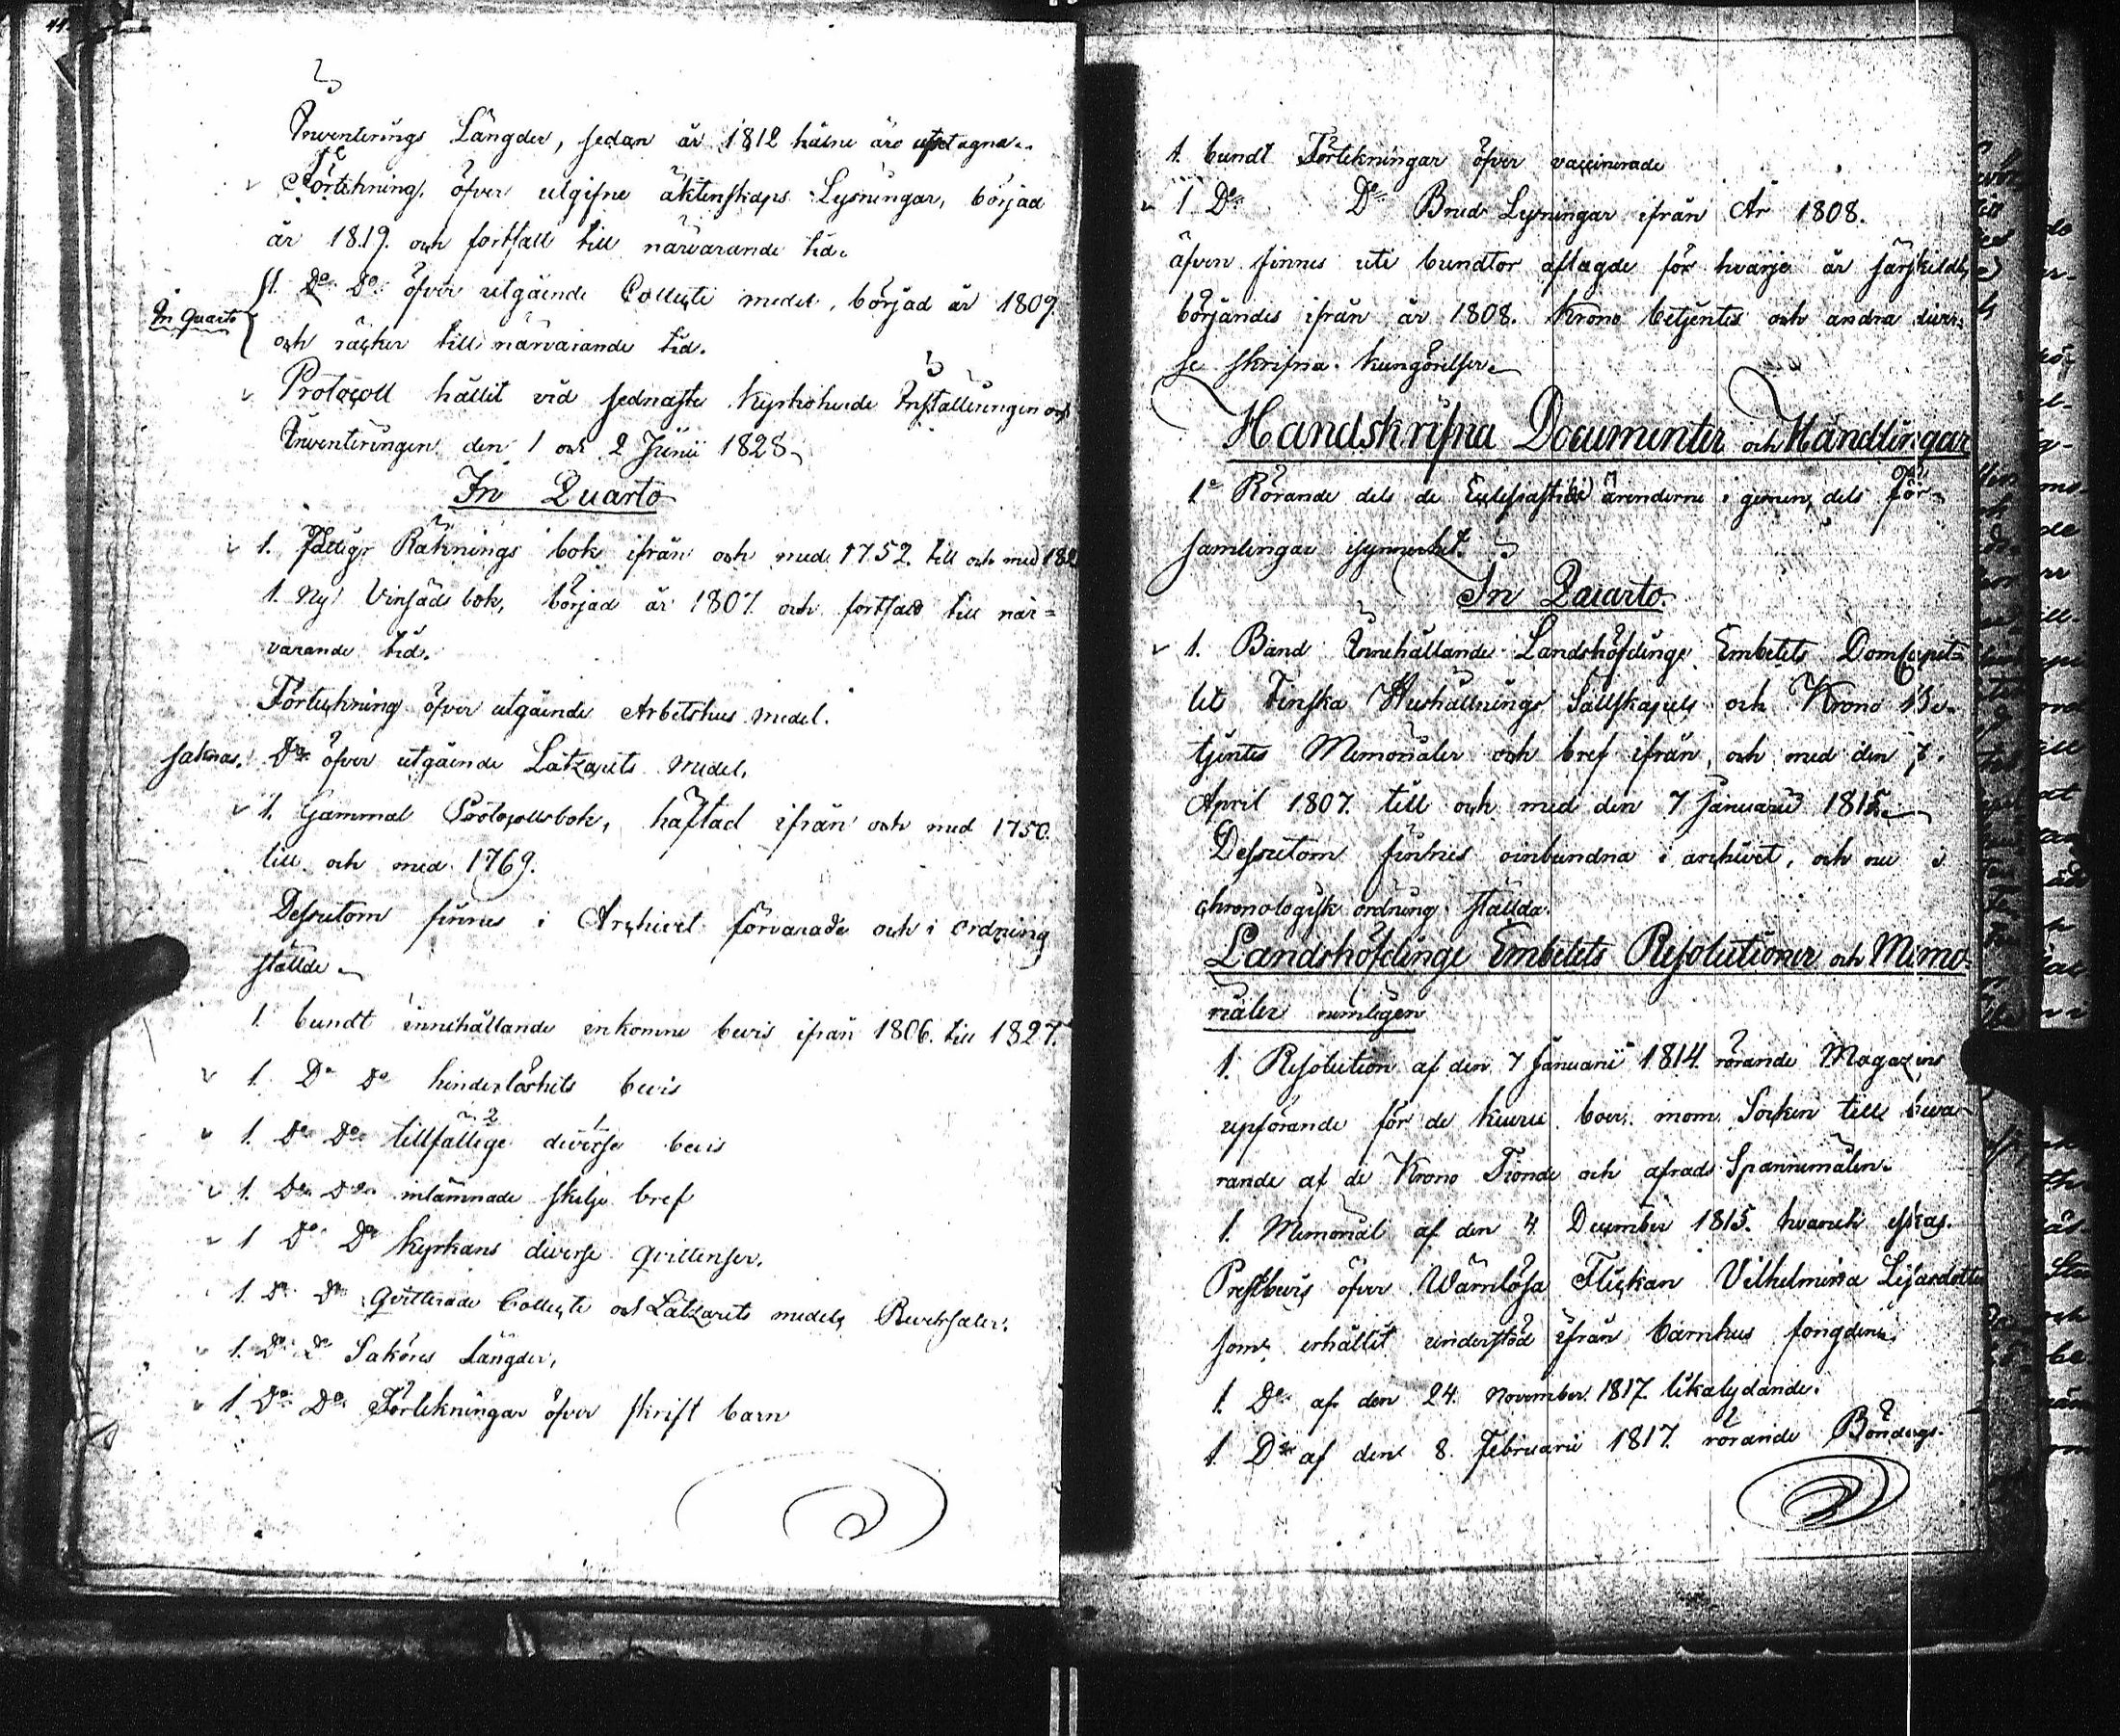 Inventerings Längder, sedan år 1812 hälne äro upptagne.
Förtekning öfver utgifne äktenskaps Lysningar, börjad
år 1819. och fortsatt till närvarande tid.
1. Do Do öfver utgående Collecte medel, börjad år 1809.
In Quarto
och räcker till närvarande tid.
Protocoll hållit vid sednaste Kyrkoherde Installeringen och
Inventeringen den 1 och 2 Junii 1828
In Quarto
1. Fattigs Räknings bok ifrån och med 1752. till och med
1. Ny Vinsäds bok, börjad år 1807 och fortsatt till när=
varande tid.
Förteckning öfver utgående Arbetshus medel.
saknas. Do öfver utgående Latzarets medel.
1. Gammal Protocollsbok, häftad ifrån och med 1750.
till och med 1769.
Dessutom finnes i Archivet förvarade och i ordning
ställde
1. bundt innehållande inkomne bevis ifrån 1806. till 1827.
1. Do Do hinderlöshets bevis
1. Do Do tillfällige 2 diverse 1 bevis
1. Do Do inlämnade skilje bref
1 Do Do Kyrkans diverse qvittenser.
1. Do Do Qvitterade Collecte och Latzarets medels Reversaler.
1. Do Do Saköres Längder,
1. Do Do Förtekningar öfver skrift barn
1. bundt Förtekningar öfver vaccinerade
1 Do Do Bruds Lysningar ifrån År 1808.
äfven finnes uti bundtor aflagde för hvarje år särskildt,
börjandes ifrån år 1808. Krono betjentes och andra diver=
se skrifna kungörelser
Handskrifna Documenter och Handlingar
1o Rörande dels de Ecclesiastike ärenderne i gemen, dels För=
samlingar isynnerhet.
In Quarto.
1. Band Innehållande Landshöfdinge Embetets Domcapit=
lets Finska Hushållnings Sällskapets och Krono Be=
tjentes Memorialer och bref ifrån och med den 7.
April 1807. till och med den 7 Januarii 1815.
Dessutom finnes oinbundna i archivet, och nu i
chronologisk ordning ställda.
Landshöfdinge Embetets Resolutioner och Memo=
rialer nemligen
1. Resolution af den 7 Januarii 1814 rörande Magazins
uppförande för de Kuuru boer. inom Socken till beva=
rande af de Krono Tionde och afrads Spannemålen.
1. Memorial af den 4 December 1815. hvaruti äskas.
Prestbevis öfver Wärnlösa Flickan Vilhelmina Lisasdotter
som erhållit understöd ifrån barnhus fongdene.
1. Do af den 24. November 1817 likalydande.
1. Do af den 8. Februarii 1817 rörande Böndags=